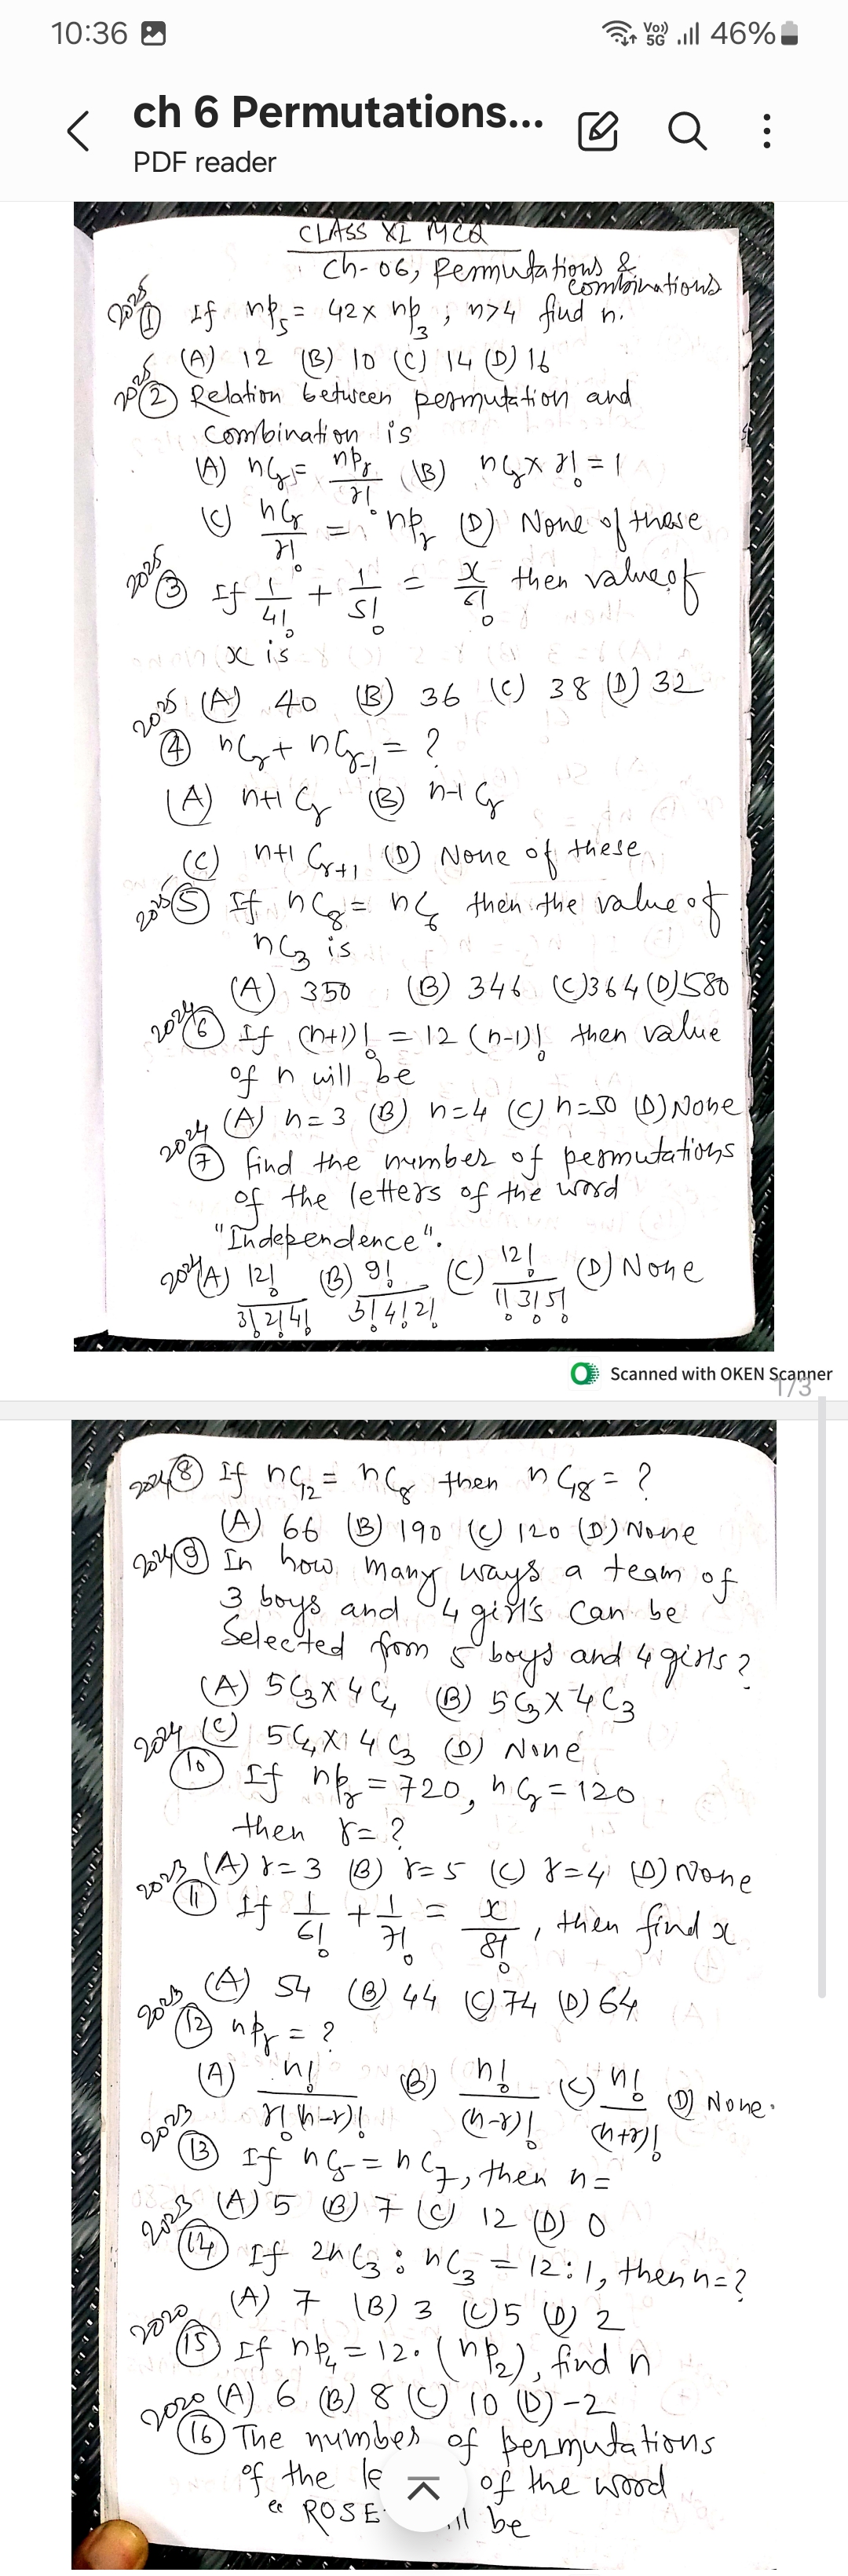 10:36
Vo))
5G
46%
ch 6 Permutations...
PDF reader
CLASS XI MCQ
Ch-06, Permutations &
combinations
2025 ① If nP₅ = 42 x nP₃ ; n>4 find n.
(A) 12 (B) 10 (C) 14 (D) 16
2025 ② Relation between permutation and
combination is
(A) nCr = nPr/r! (B) nCr x r! = 1
(C) nCr/r! = nPr (D) None of these
2025 ③ If 1/4! + 1/5! = x/6! then value of
x is
(A) 40 (B) 36 (C) 38 (D) 32
2025 ④ nCr + nCr-1 = ?
(A) n+1 Cr (B) n-1 Cr
(C) n+1 Cr+1 (D) None of these
2025 ⑤ If nC₈ = nC₆ then the value of
nC₃ is
(A) 350 (B) 346 (C) 364 (D) 580
2024 ⑥ If (n+1)! = 12 (n-1)! then value
of n will be
(A) n=3 (B) n=4 (C) n=50 (D) None
2024 ⑦ find the number of permutations
of the letters of the word
"Independence".
2024 (A) 12!/3!2!4! (B) 9!/3!4!2! (C) 12!/1!3!5! (D) None
Scanned with OKEN Scanner
1/3
2024 ⑧ If nC₁₂ = nC₈ then nC₁₈ = ?
(A) 66 (B) 190 (C) 120 (D) None
2024 ⑨ In how many ways a team of
3 boys and 4 girls can be
Selected from 5 boys and 4 girls?
(A) 5C₃ X 4C₄ (B) 5C₃ X 4C₃
(C) 5C₄ X 4C₃ (D) None
2024 ⑩ If nPr = 720, nCr = 120
then r = ?
(A) r=3 (B) r=5 (C) r=4 (D) None
2023 ⑪ If 1/6! + 1/7! = x/8!, then find x
(A) 54 (B) 44 (C) 74 (D) 64
2023 ⑫ nPr = ?
(A) n!/r!(n-r)! (B) n!/(n-r)! (C) n!/(n+r)! (D) None.
2023 ⑬ If nC₅ = nC₇, then n =
(A) 5 (B) 7 (C) 12 (D) 0
2023 ⑭ If 2nC₃ : nC₃ = 12:1, then n=?
(A) 7 (B) 3 (C) 5 (D) 2
2020 ⑮ If nP₄ = 12. (nP₂), find n
(A) 6 (B) 8 (C) 10 (D) -2
2020 ⑯ The number of permutations
of the le of the word
"ROSE be